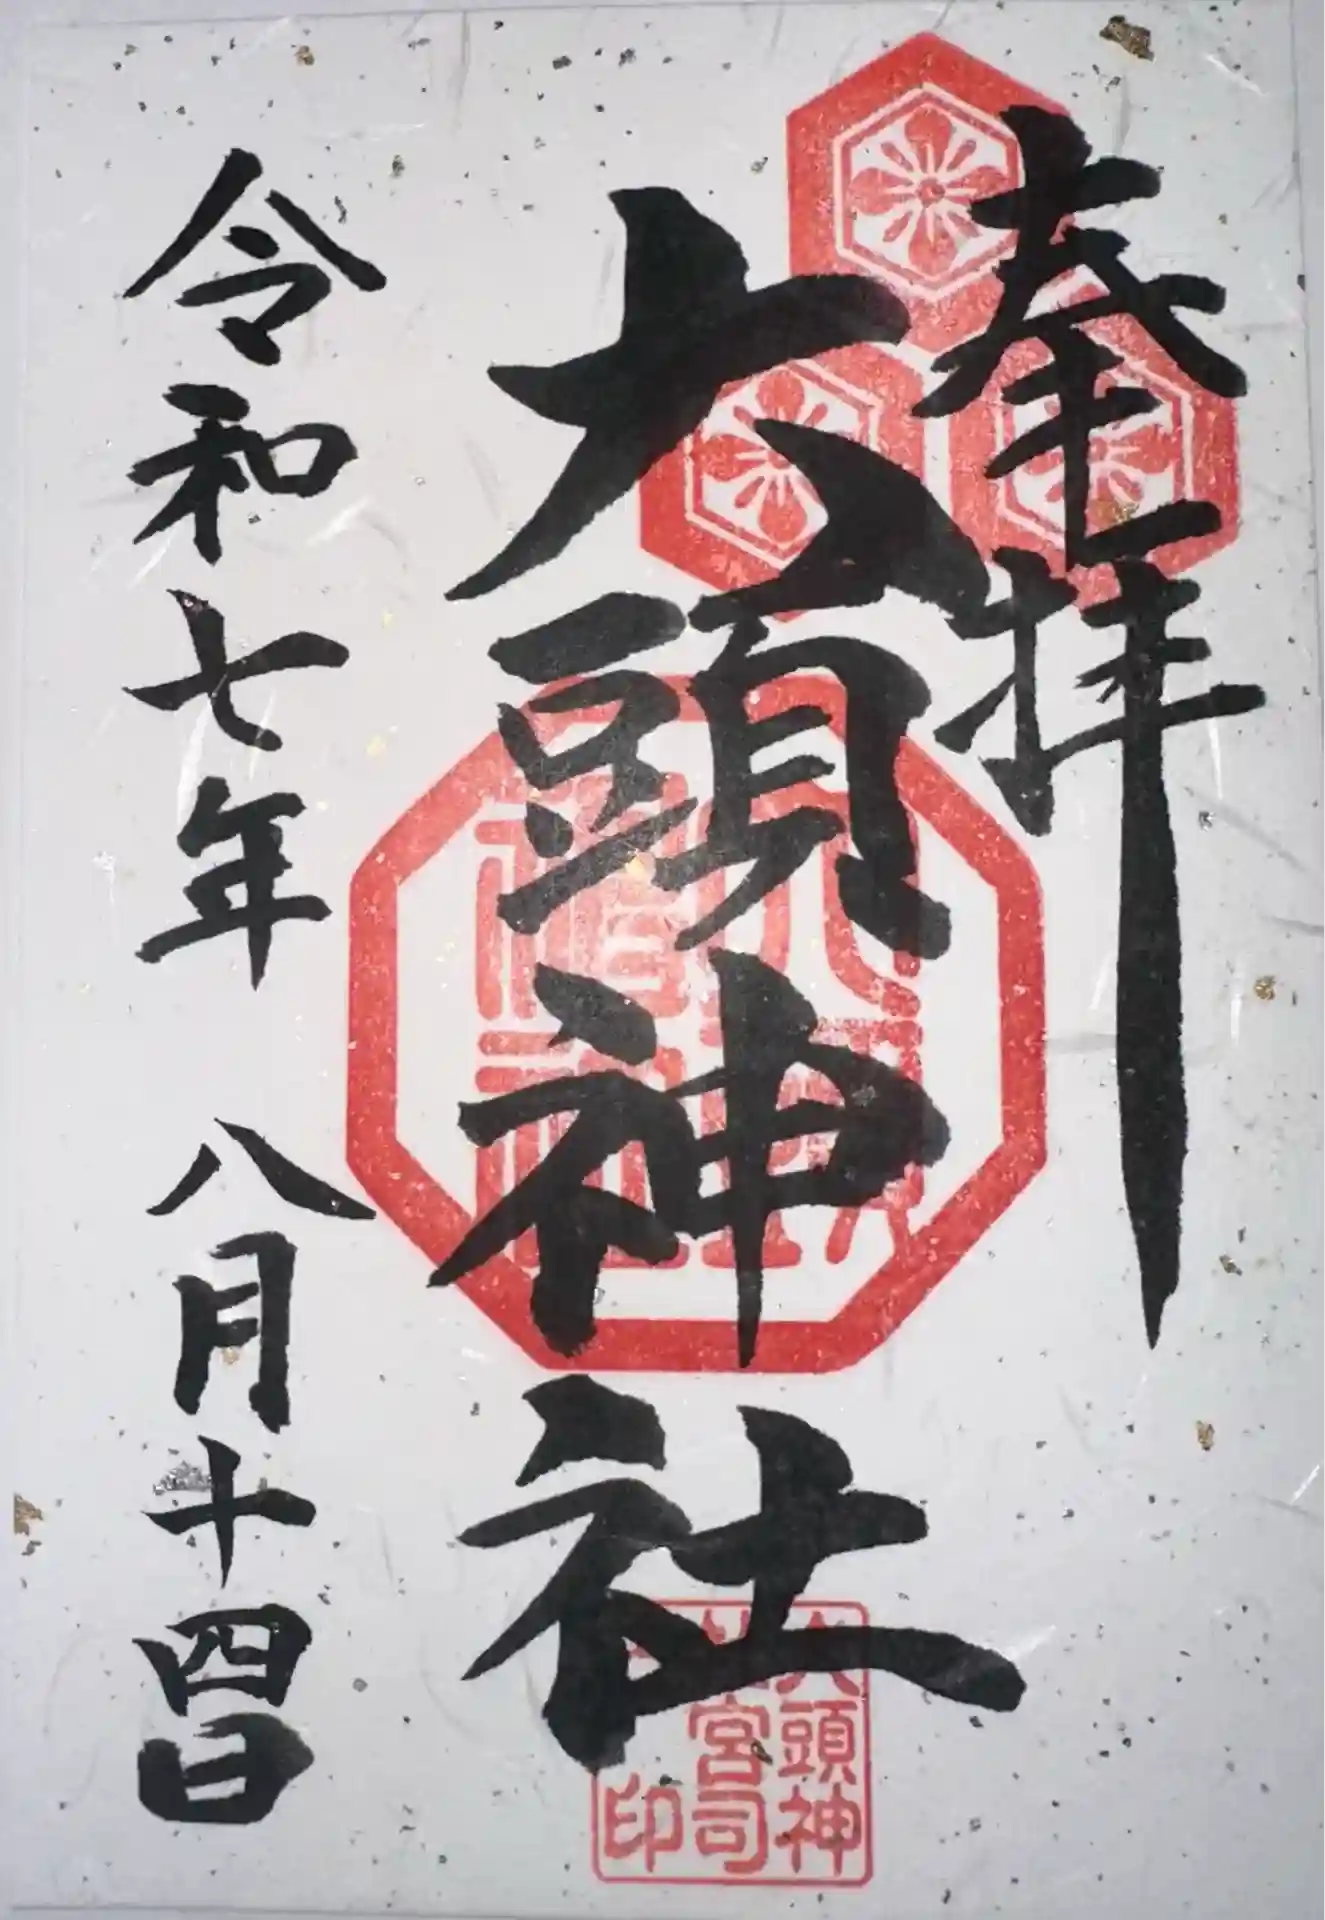 奉拝
大頭神社
大頭神
社宮司
印
令和七年 八月十四日